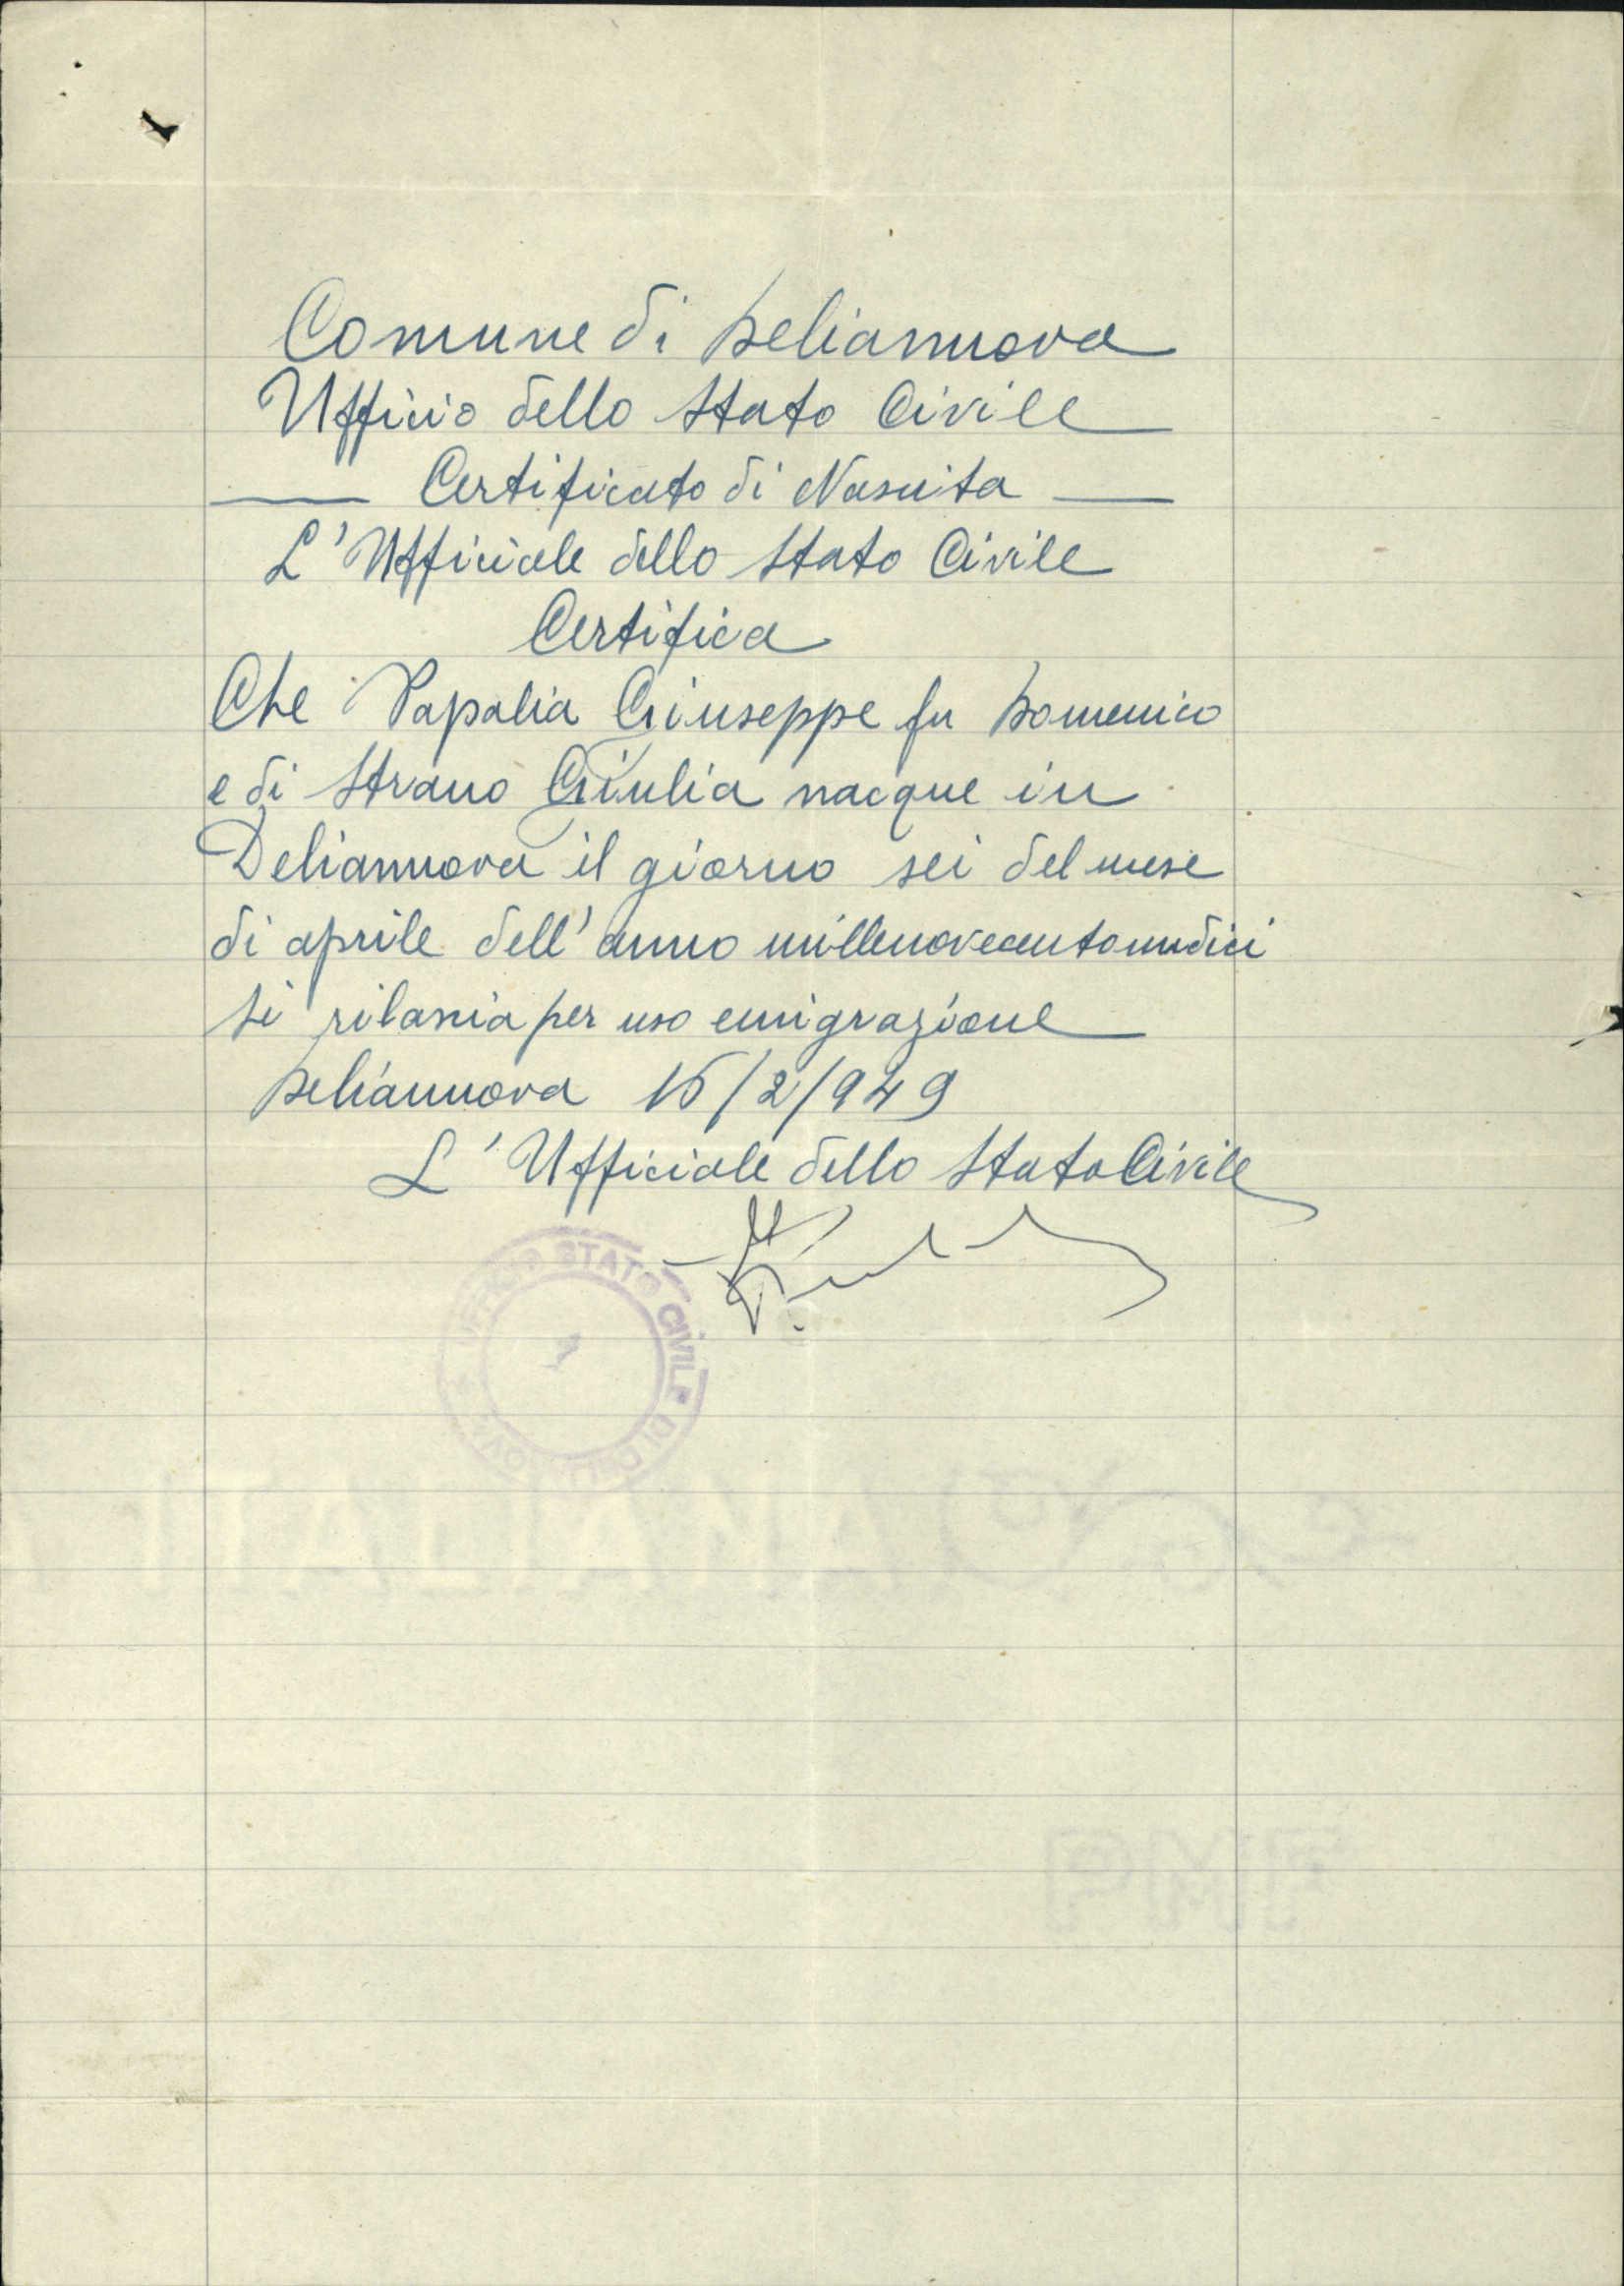 Comune di Delianuova
Ufficio dello Stato Civile
Certificato di Nascita
L'Ufficiale dello Stato Civile
Certifica
Che Papalia Giuseppe fu Domenico
e di Strano Giulia nacque in
Delianuova il giorno sei del mese
di aprile dell'anno millenovecentoundici
Si rilascia per uso emigrazione
Delianuova 15/2/949
L'Ufficiale dello Stato Civile
STATO CIVILE